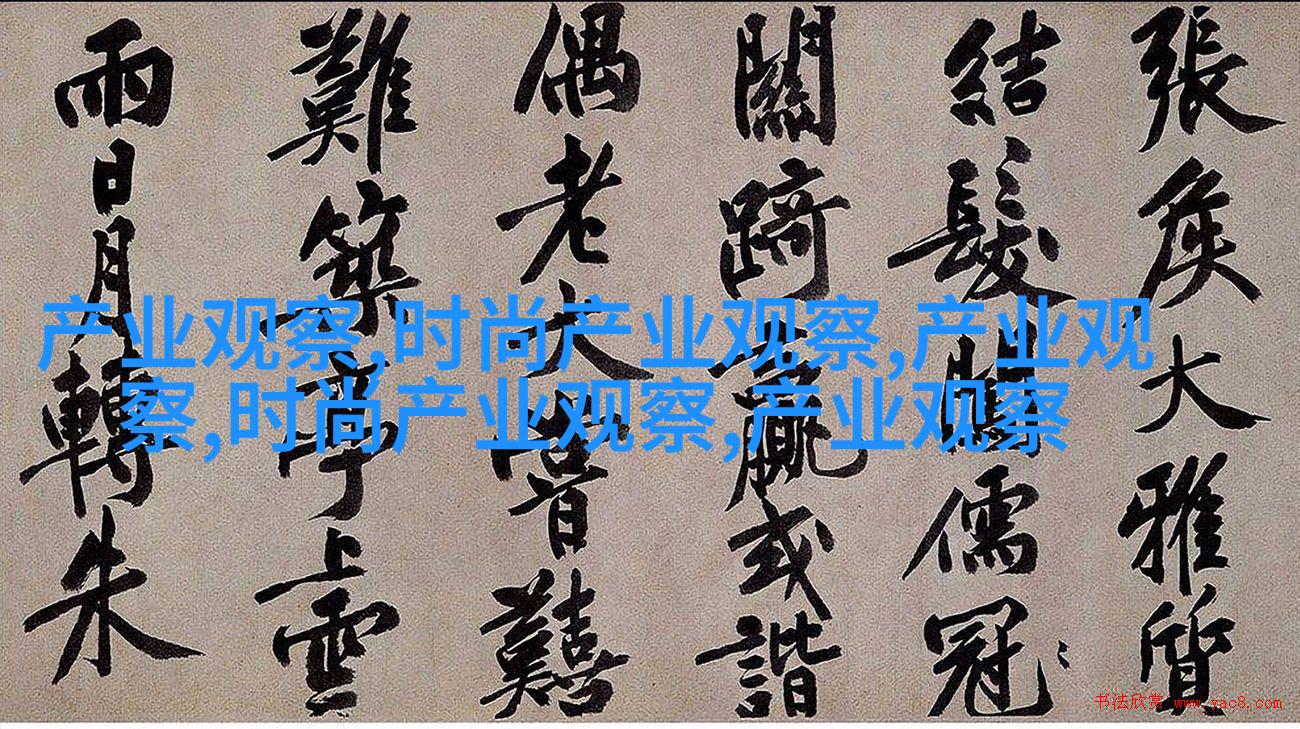 張矦大雅質
結髮賜儒冠
踦或諧
偶老大
難築亭上雲
雨日月轉朱
产业观察,时尚产业观察,产业观
察,时尚产业观察,产业观察
书法欣赏 www.yac8.com